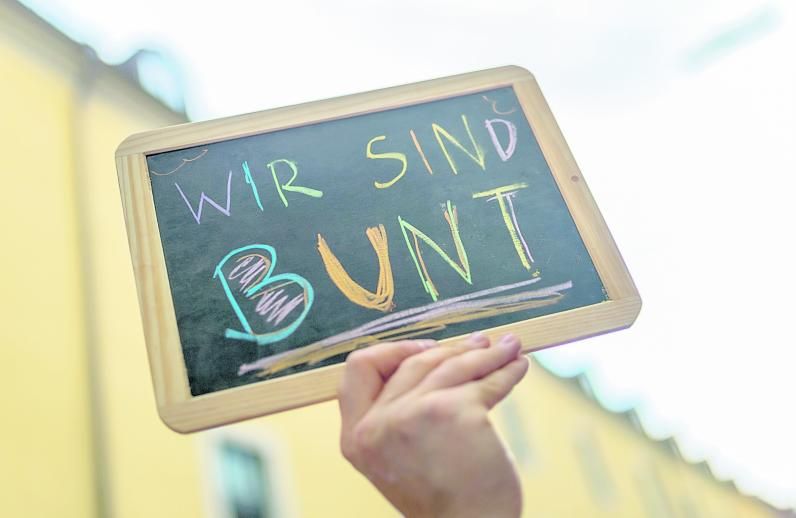 WIR SIND
BUNT